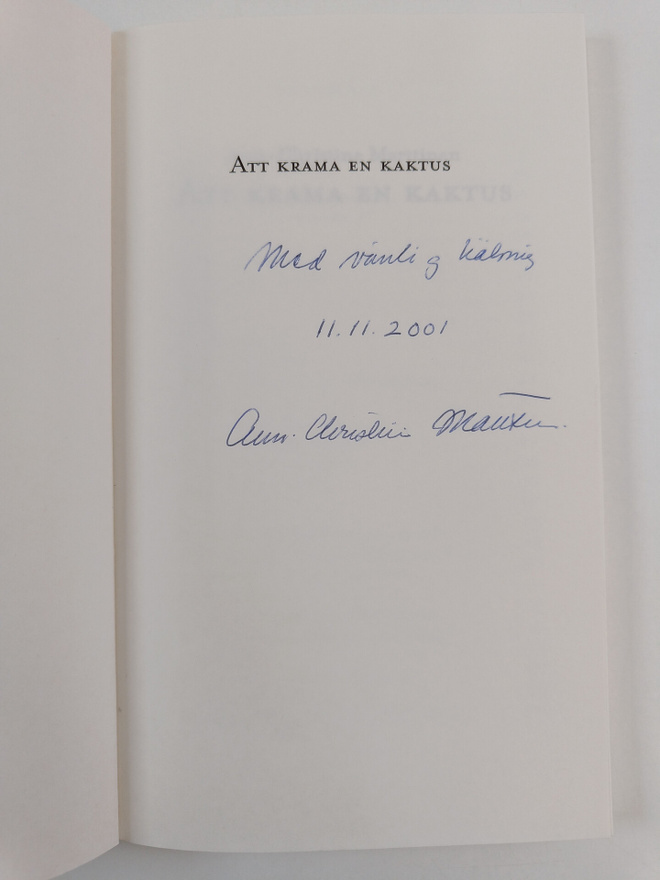 Att krama en kaktus
Med vänlig hälsning
11.11.2001
Ann-Christin